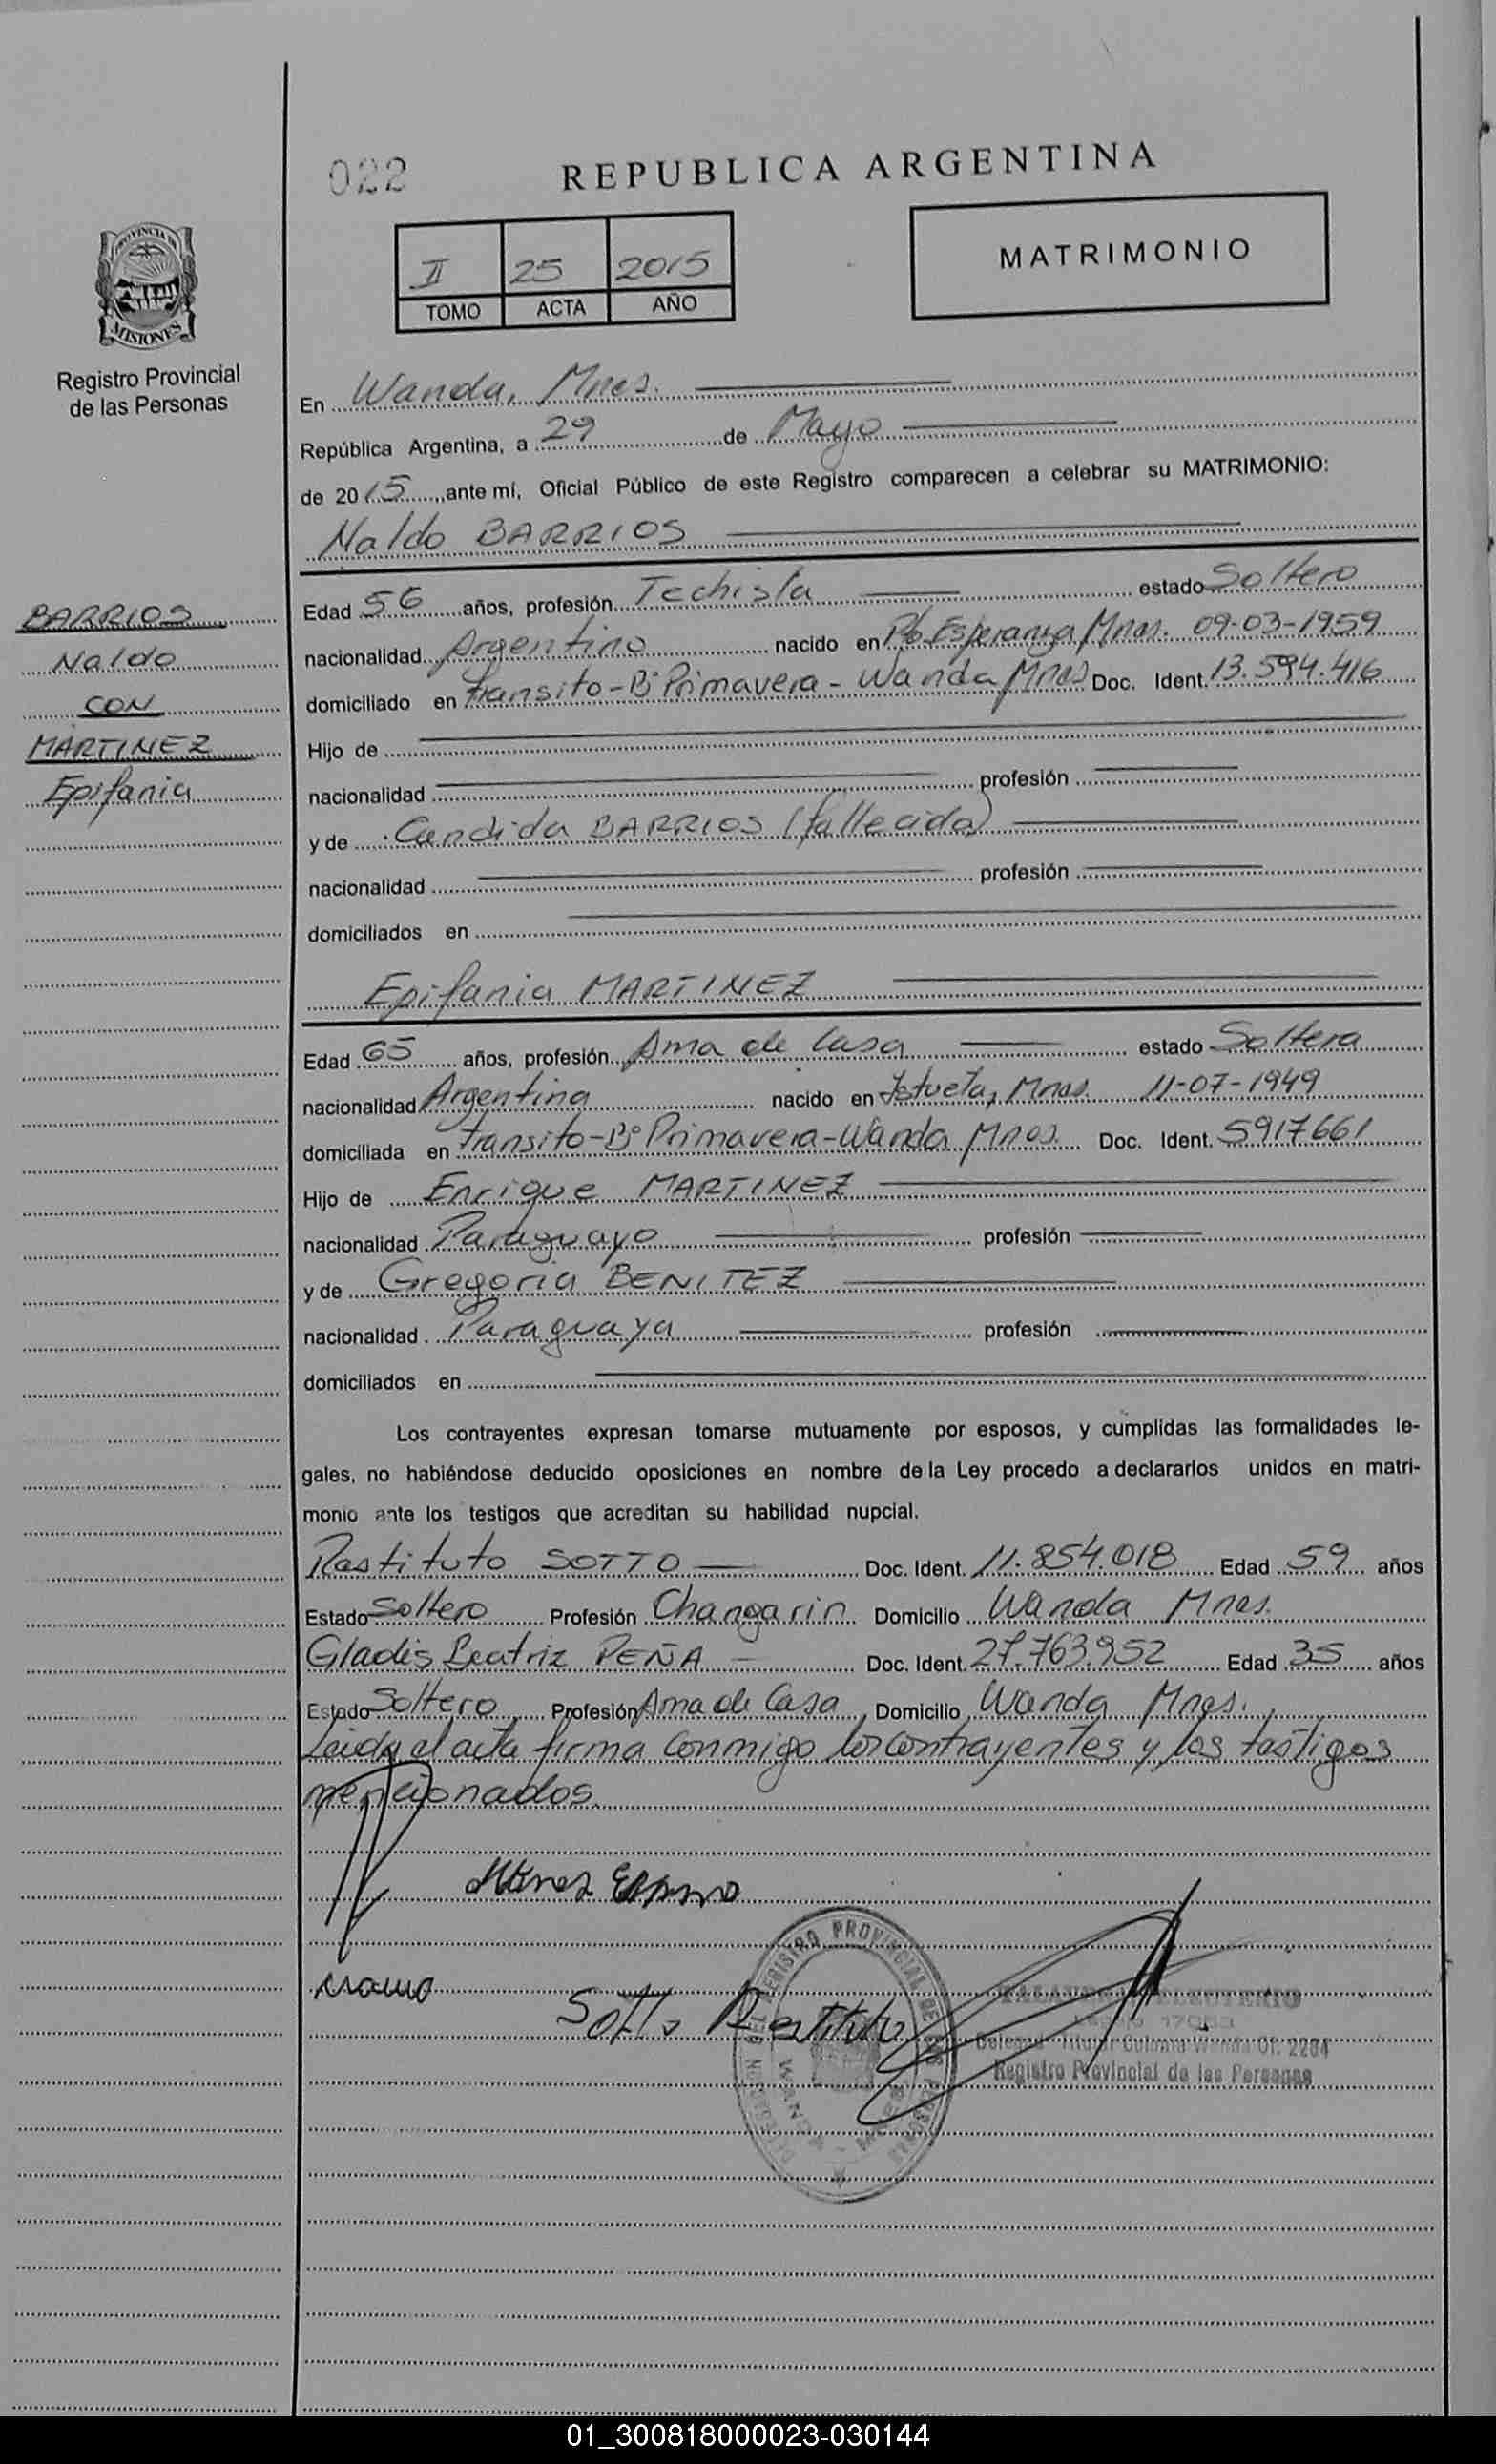 022
REPUBLICA ARGENTINA
PROVINCIA DE
MISIONES
Registro Provincial
de las Personas
II 25 2015
TOMO ACTA AÑO
MATRIMONIO
En Wanda, Mnes.
República Argentina, a 29 de Mayo
de 2015 ante mí, Oficial Público de este Registro comparecen a celebrar su MATRIMONIO:
Naldo BARRIOS
BARRIOS
Naldo
CON
MARTINEZ
Epifania
Edad 56 años, profesión Techista estado Soltero
nacionalidad Argentino nacido en Pto Esperanza Mnes. 09-03-1959
domiciliado en transito-Bº Primavera-Wanda Mnes Doc. Ident. 13.594.416
Hijo de
nacionalidad profesión
y de Candida BARRIOS (fallecida)
nacionalidad profesión
domiciliados en
Epifania MARTINEZ
Edad 65 años, profesión Ama de Casa estado Soltera
nacionalidad Argentina nacido en Istueta, Mnes. 11-07-1949
domiciliada en transito-Bº Primavera-Wanda Mnes. Doc. Ident. 5917661
Hijo de Enrique MARTINEZ
nacionalidad Paraguayo profesión
y de Gregoria BENITEZ
nacionalidad Paraguaya profesión
domiciliados en
Los contrayentes expresan tomarse mutuamente por esposos, y cumplidas las formalidades le-
gales, no habiéndose deducido oposiciones en nombre de la Ley procedo a declararlos unidos en matri-
monio ante los testigos que acreditan su habilidad nupcial.
Restituto SOTTO Doc. Ident. 11.854.018 Edad 59 años
Estado Soltero Profesión Changarin Domicilio Wanda Mnes.
Gladis Beatriz PEÑA Doc. Ident. 27.763.952 Edad 35 años
Estado Soltero Profesión Ama de Casa Domicilio Wanda Mnes.
Leida el acta firma conmigo los contrayentes y los testigos
mencionados.
Sotto Restituto
ELEUTERIO
Titular Colonia Wanda Of. 2204
Registro Provincial de las Personas
REGISTRO PROVINCIAL DE LAS PERSONAS
WANDA - MNES
01_300818000023-030144